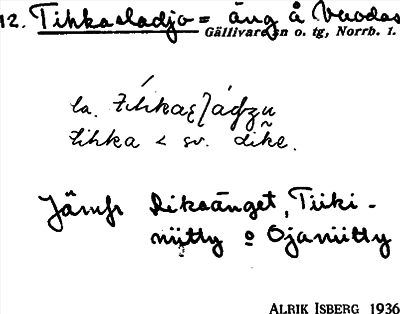 12. Tihkasladjo = äng å Vuodas
Gällivare sn o. tg, Norrb. l.
la.
tihka < sv. dike.
Jämfr Dikesänget, Tiiki-
niitty o Ojaniitty
ALRIK ISBERG 1936